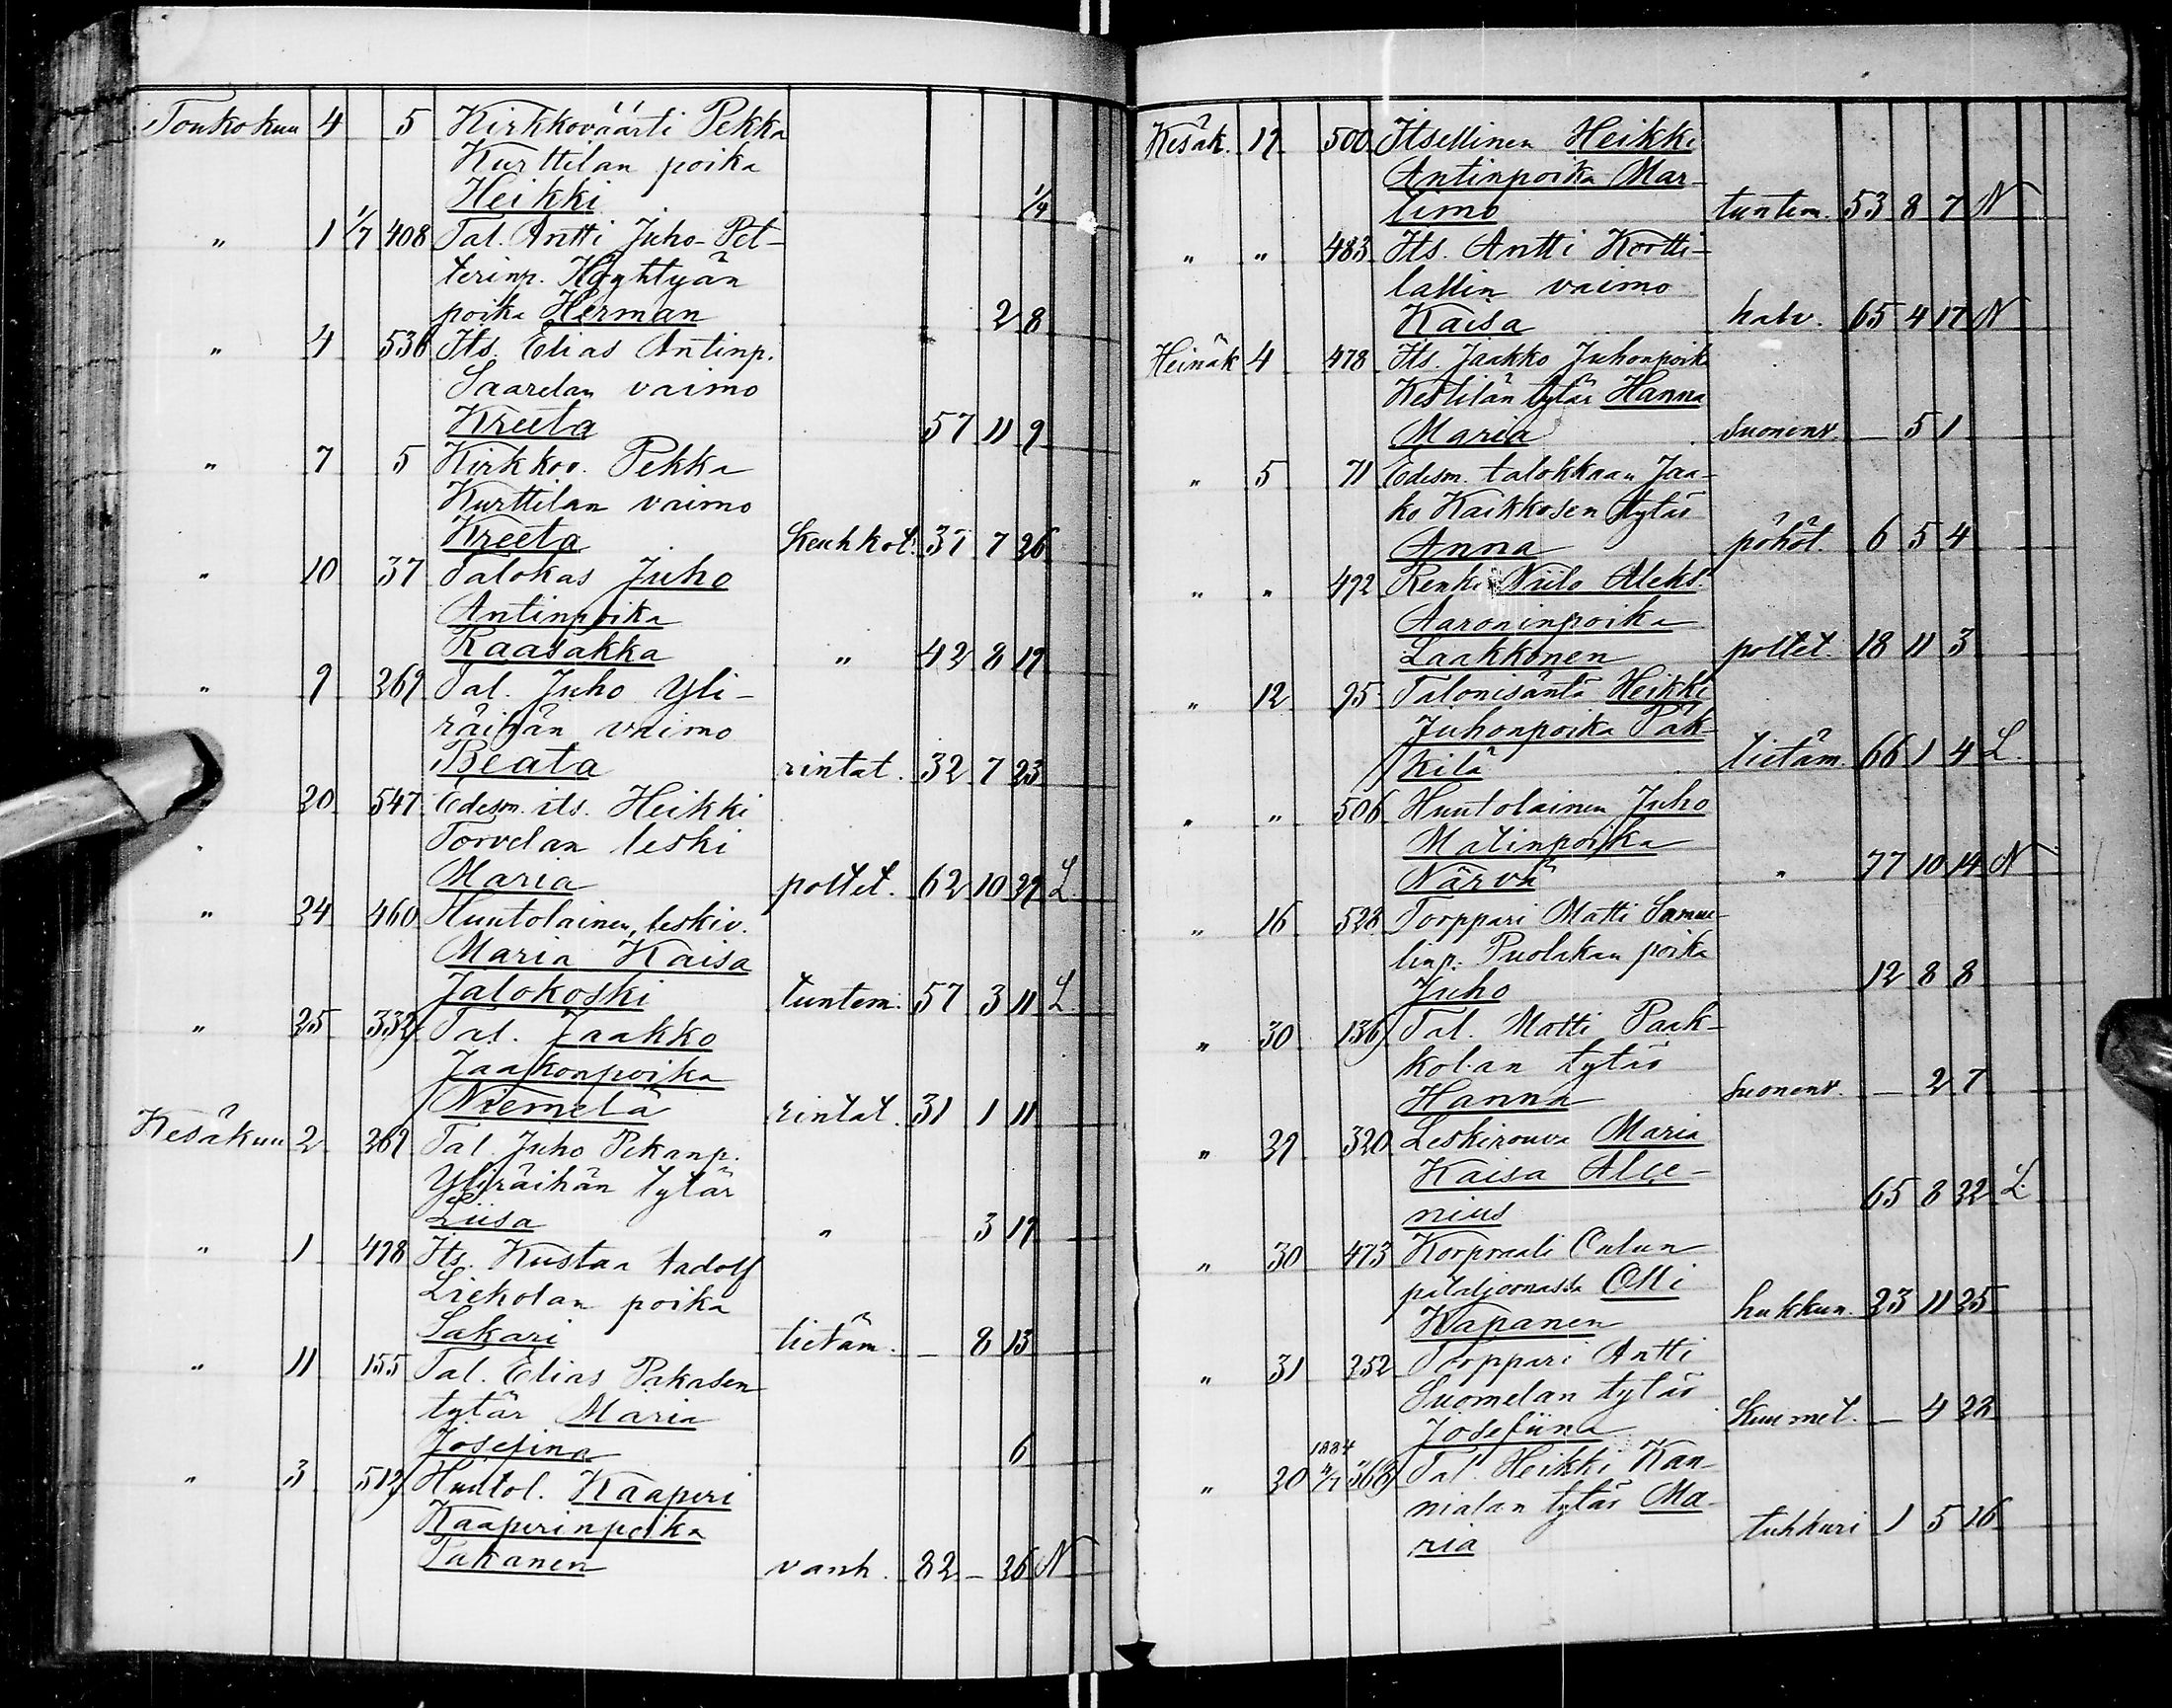 Toukokuu 4 5 Kirkkoväärti Pekka
Kurttilan poika
Heikki 1/4
" 1 1/7 408 Tal. Antti Juho-Pet-
terinp. Höyhtyän
poika Herman 2 8
" 4 536 Its. Elias Antinp.
Saarelan vaimo
Kreeta 57 11 9
" 7 5 Kirkkov. Pekka
Kurttilan vaimo
Kreeta Keuhkot. 37 7 26
" 10 37 Talokas Juho
Antinpoika
Raasakka " 42 8 19
" 9 269 Tal. Juho Yli-
räihän vaimo
Beata rintat. 32 7 23
" 20 547 Edesm. its. Heikki
Torvelan leski
Maria polttet. 62 10 29 L.
" 24 460 Huutolainen, leskiv.
Maria Kaisa
Jalokoski tuntem. 57 3 11 L.
" 25 332 Tal. Jaakko
Jaakonpoika
Niemelä rintat. 31 1 11
Kesäkuu 2 269 Tal. Juho Pekanp.
Yliräihän tytär
Liisa " – 3 19
" 1 498 Its. Kustaa Aadolf
Liekolan poika
Sakari tietäm. – 8 13
" 11 155 Tal. Elias Pakasen
tytär Maria
Josefina 6
" 3 512 Huutol. Kaaperi
Kaaperinpoika
Pakanen vanh. 82 – 26 N
Kesäk. 19 500 Itsellinen Heikki
Antinpoika Mar-
timo tuntem. 53 8 7 N
" " 483 Its. Antti Kortti-
lallin vaimo
Kaisa halv. 65 4 17 N
Heinäk 4 478 Its. Jaakko Juhonpoik
Kestilän tytär Hanna
Maria suonenv. – 5 1
" 5 71 Edesm. talokkaan Jaa-
ko Kaikkosen tytär
Anna pöhöt. 6 5 4
" " 492 Renki Niilo Aleks.
Aaroninpoika
Laakkonen polttet. 18 11 3
" 12 95 Talonisäntä Heikki
Juhonpoika Päk-
kilä tietäm. 66 1 4 L.
" " 506 Huutolainen Juho
Matinpoika
Närvä " 77 10 14 N
" 16 528 Torppari Matti Samue-
linp. Puolakan poika
Juho 12 8 8
" 30 136 Tal. Matti Paak-
kolan tytär
Hanna suonenv. – 2 7
" 29 320 Leskirouva Maria
Kaisa Alce-
nius 65 8 22 L.
" 30 473 Korpraali Oulun
pataljoonassa Olli
Kapanen hukkun. 23 11 25
" 31 252 Torppari Antti
Suomelan tytär
Josefiina Kuumet. – 4 22
1884
" 20 4/7 368 Tal. Heikki Kan-
nialan tytär Ma-
ria tuhkuri 1 5 16